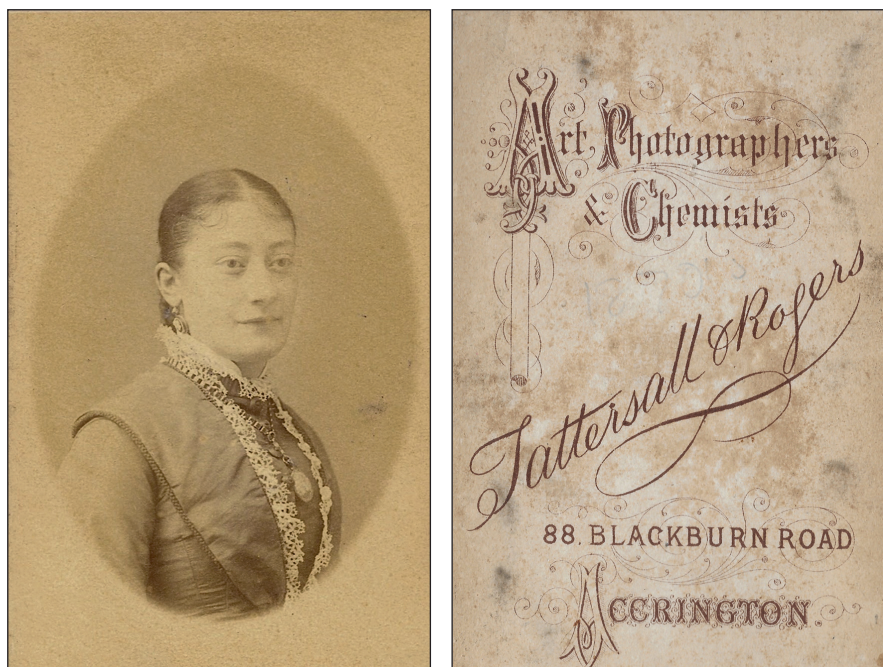 Art Photographers
& Chemists
Tattersall & Rogers
88. BLACKBURN ROAD
ACCRINGTON.